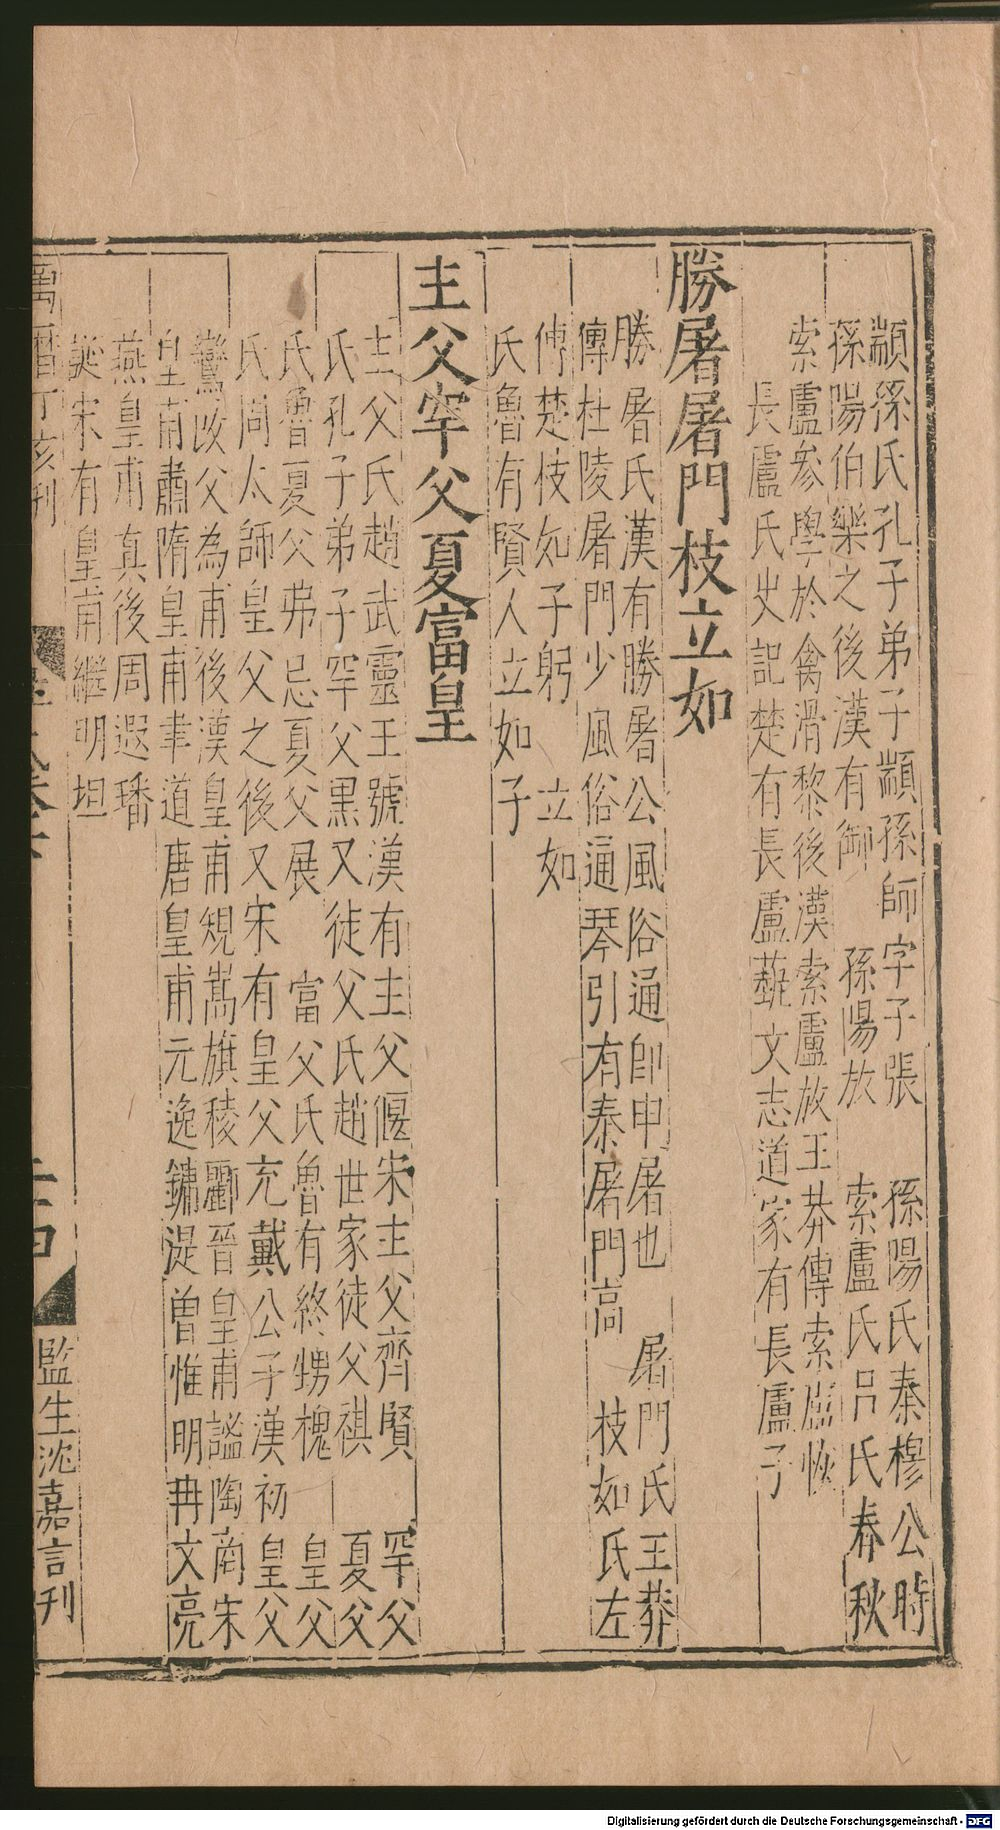 顓孫氏孔子弟子顓孫師字子張　孫陽氏秦穆公時
孫陽伯樂之後漢有御　孫陽放　索盧氏呂氏春秋
索盧參學於禽滑黎後漢索盧放王莽傳索盧恢
長盧氏史記楚有長盧藝文志道家有長盧子
勝屠屠門枝立如
勝屠氏漢有勝屠公風俗通卽申屠也　屠門氏王莽
傳杜陵屠門少風俗通琴引有泰屠門高　枝如氏左
傳楚枝如子躬　立如
氏魯有賢人立如子
主父罕父夏富皇
主父氏趙武靈王號漢有主父偃宋主父齊賢　罕父
氏孔子弟子罕父黑又徒父氏趙世家徒父祺　夏父
氏魯夏父弗忌夏父展　富父氏魯有終甥槐　皇父
氏周太師皇父之後又宋有皇父充戴公子漢初皇父
鸞改父為甫後漢皇甫規嵩旗稜酈晉皇甫謐陶商宋
皇甫肅隋皇甫聿道唐皇甫元逸鏞湜曾惟明冉文亮
燕皇甫真後周遐璠
奭宋有皇甫繼明坦
萬曆丁亥刊
二十四
監生沈嘉言刊
Digitalisierung gefördert durch die Deutsche Forschungsgemeinschaft - DFG